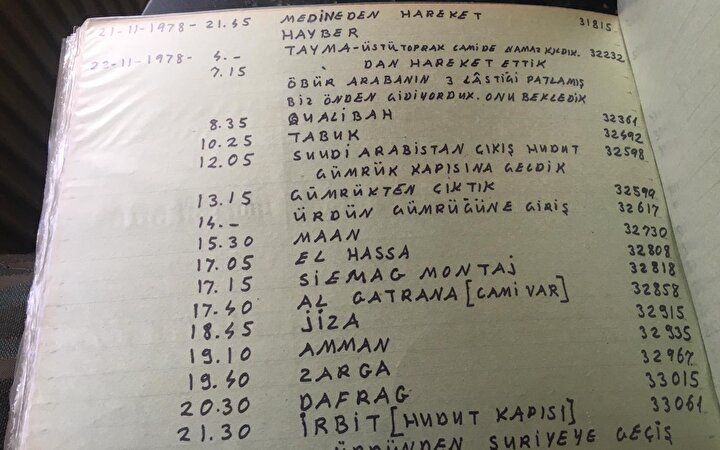 21-11-1978- 21.45 MEDİNEDEN HAREKET 31815
HAYBER
22-11-1978- 4.- TAYMA-ÜSTÜ TOPRAK CAMİDE NAMAZ KILDIK. 32232
7.15 DAN HAREKET ETTİK
ÖBÜR ARABANIN 3 LÂSTİĞİ PATLAMIŞ
BİZ ÖNDEN GİDİYORDUK. ONU BEKLEDİK
8.35 QUALIBAH 32361
10.25 TABUK 32492
12.05 SUUDİ ARABİSTAN ÇIKIŞ HUDUT 32598
GÜMRÜK KAPISINA GELDİK
13.15 GÜMRÜKTEN ÇIKTIK 32599
14.- ÜRDÜN GÜMRÜĞÜNE GİRİŞ 32617
15.30 MAAN 32730
17.05 EL HASSA 32808
17.15 SİEMAG MONTAJ 32818
17.40 AL GATRANA [CAMİ VAR] 32858
18.45 JİZA 32915
19.10 AMMAN 32935
19.40 ZARGA 32967
20.30 DAFRAG 33015
21.30 İRBİT [HUDUT KAPISI] 33061
ÜRDÜNDEN SURİYEYE GEÇİŞ